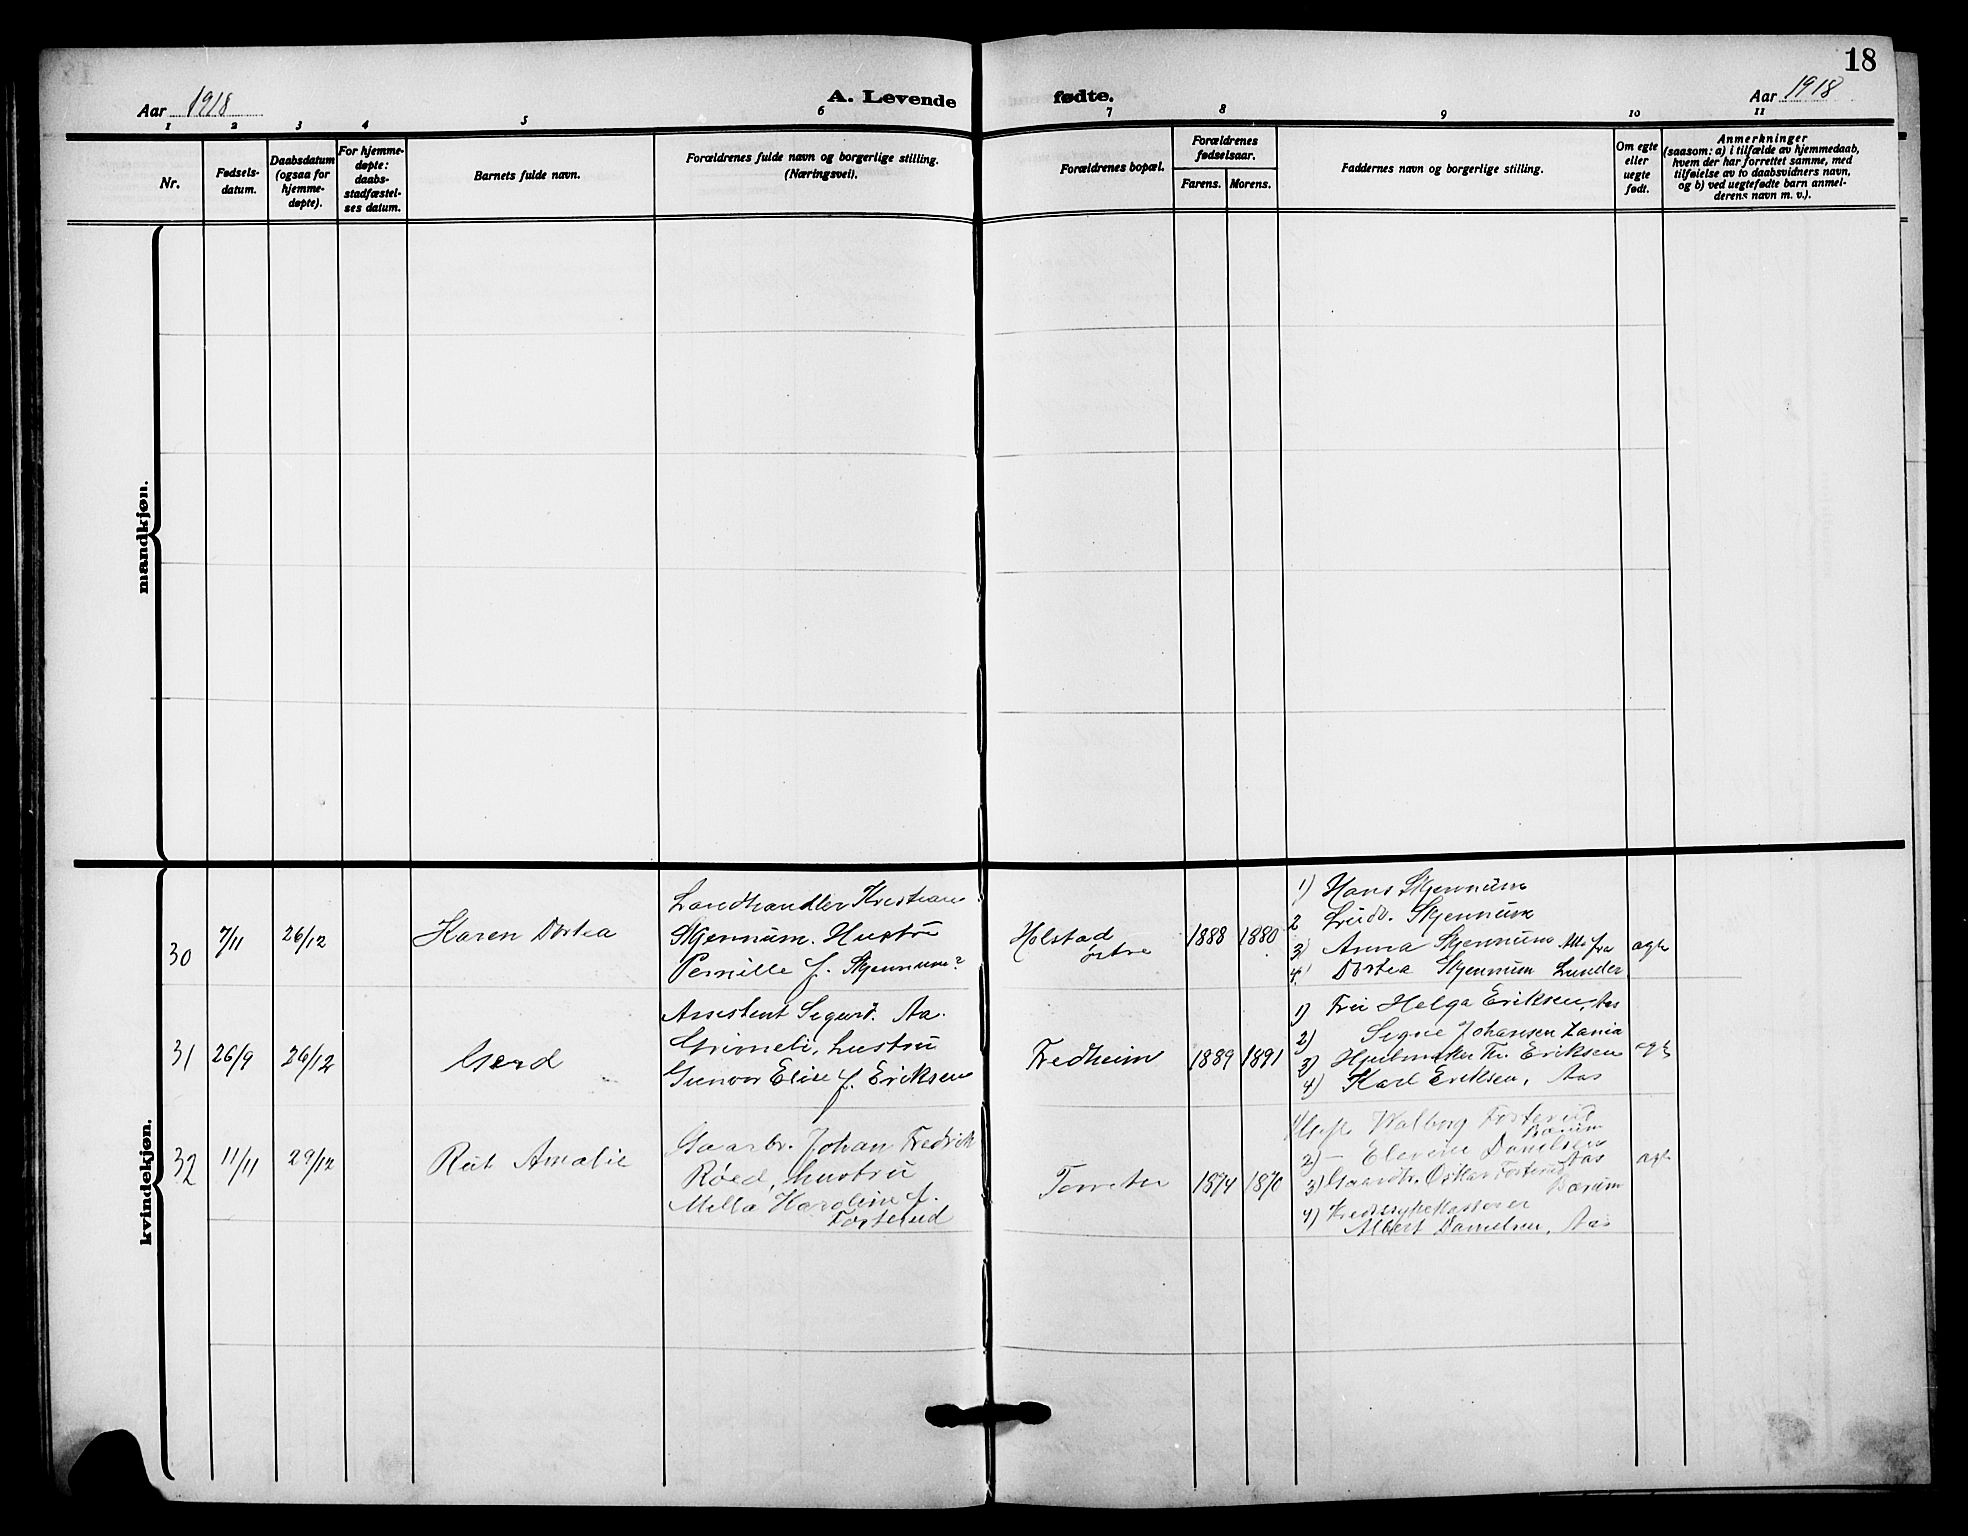 18
Aar 1918
A. Levende fødte.
Aar 1918
1 2 3 4 5 6 7 8 9 10 11
Nr.
Fødsels-
datum.
Daabsdatum
(ogsaa for
hjemme-
døpte).
For hjemme-
døpte:
daabs-
stadfæstel-
ses datum.
Barnets fulde navn.
Forældrenes fulde navn og borgerlige stilling.
(Næringsvei).
Forældrenes bopæl.
Forældrenes
fødselsaar.
Farens. Morens.
Faddernes navn og borgerlige stilling.
Om egte
eller
uegte
født.
Anmerkninger
(saasom: a) i tilfælde av hjemmedaab,
hvem der har forrettet samme, med
tilføielse av to daabsvidners navn,
og b) ved uegtefødte barn anmel-
derens navn m. v.).
mandkjøn.
kvindekjøn.
30
7/11
26/12
Karen Dortea
Landhandler Kristian
Skjennum. Hustru
Pernille f. Skjennum?
Holstad
østre
1888
1880
1) Hans Skjennum
2 Ludv. Skjennum
3) Anna Skjennum Alle fra
4) Dortea Skjennum Lunder
ægte
31
26/9
26/12
Gerd
Assistent Sigurd Aa.
Grimeli, hustru
Gunvor Elise f. Eriksen
Fredheim
1889
1891
1) Fru Helga Eriksen, Aas
2) Signe Johansen
3) Hjulmaker Th. Eriksen
4) Karl Eriksen, Aas
ægte
32
11/11
29/12
Rut Amalie
Gaardbr. Johan Fredrik
Røed, hustru
Milla Karoline f.
Fosterud
Torveter
1874
1870
1) Valborg Fosterud
Bærum
2) — Elevine Danielsen
Aas
3) Gaardbr. Oskar Fosterud
Bærum
4) Kredssykekasserer
Albert Danielsen, Aas
ægte